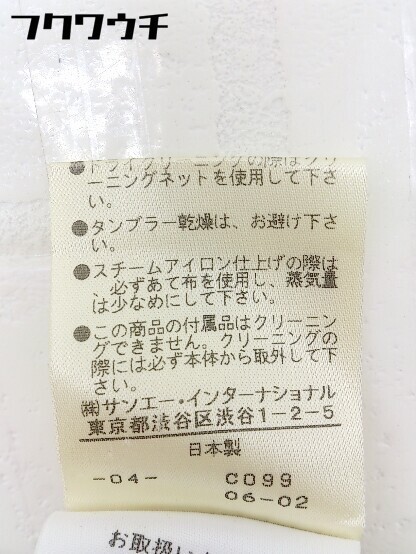 フクワウチ
●ドライクリーニングの際はクリ
ーニングネットを使用して下さ
い。
●タンブラー乾燥は、お避け下さ
い。
●スチームアイロン仕上げの際は
、必ずあて布を使用し、蒸気量
は少なめにして下さい。
●この商品の付属品はクリーニン
グできません。クリーニングの
際には必ず本体から取外して下
さい。
㈱サンエー・インターナショナル
東京都渋谷区渋谷1-2-5
日本製
-04- C099
06-02
お取扱い